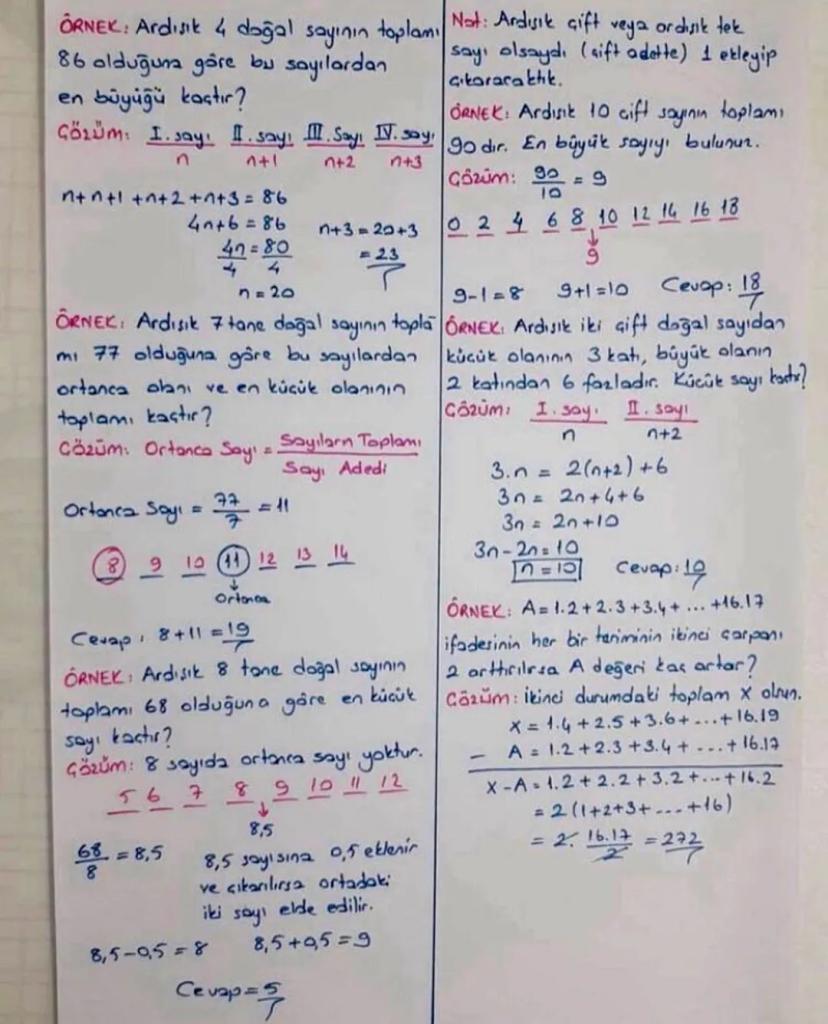 ÖRNEK: Ardışık 4 doğal sayının toplamı
86 olduğuna göre bu sayılardan
en büyüğü kaçtır?
ÇÖZÜM: I. sayı II. sayı III. Sayı IV. sayı
n n+1 n+2 n+3
n+n+1+n+2+n+3=86
4n+6=86
4n/4=80/4
n=20
n+3=20+3
=23
ÖRNEK: Ardışık 7 tane doğal sayının topla
mı 77 olduğuna göre bu sayılardan
ortanca olanı ve en küçük olanının
toplamı kaçtır?
ÇÖZÜM: Ortanca Sayı = Sayıların Toplamı
Sayı Adedi
Ortanca Sayı = 77/7 = 11
8 9 10 11 12 13 14
↓
Ortanca
Cevap: 8+11=19
ÖRNEK: Ardışık 8 tane doğal sayının
toplamı 68 olduğuna göre en küçük
sayı kaçtır?
ÇÖZÜM: 8 sayıda ortanca sayı yoktur.
5 6 7 8 9 10 11 12
↓
8,5
68/8 = 8,5
8,5 sayısına 0,5 eklenir
ve çıkarılırsa ortadaki
iki sayı elde edilir.
8,5-0,5=8 8,5+0,5=9
Cevap=5
Not: Ardışık çift veya ardışık tek
sayı olsaydı (çift adette) 1 ekleyip
çıkaracaktık.
ÖRNEK: Ardışık 10 çift sayının toplamı
90 dır. En büyük sayıyı bulunuz.
ÇÖZÜM: 90/10 = 9
0 2 4 6 8 10 12 14 16 18
↓
9
9-1=8 9+1=10 Cevap: 18
ÖRNEK: Ardışık iki çift doğal sayıdan
küçük olanının 3 katı, büyük olanın
2 katından 6 fazladır. Küçük sayı kaçtır?
ÇÖZÜM: I. sayı II. sayı
n n+2
3.n = 2(n+2)+6
3n = 2n+4+6
3n = 2n+10
3n-2n=10
n=10 Cevap: 10
ÖRNEK: A=1.2+2.3+3.4+...+16.17
ifadesinin her bir teriminin ikinci çarpanı
2 arttırılırsa A değeri kaç artar?
ÇÖZÜM: İkinci durumdaki toplam x olsun.
x=1.4+2.5+3.6+...+16.19
- A=1.2+2.3+3.4+...+16.17
x-A=1.2+2.2+3.2+...+16.2
=2(1+2+3+...+16)
=2.16.17/2=272